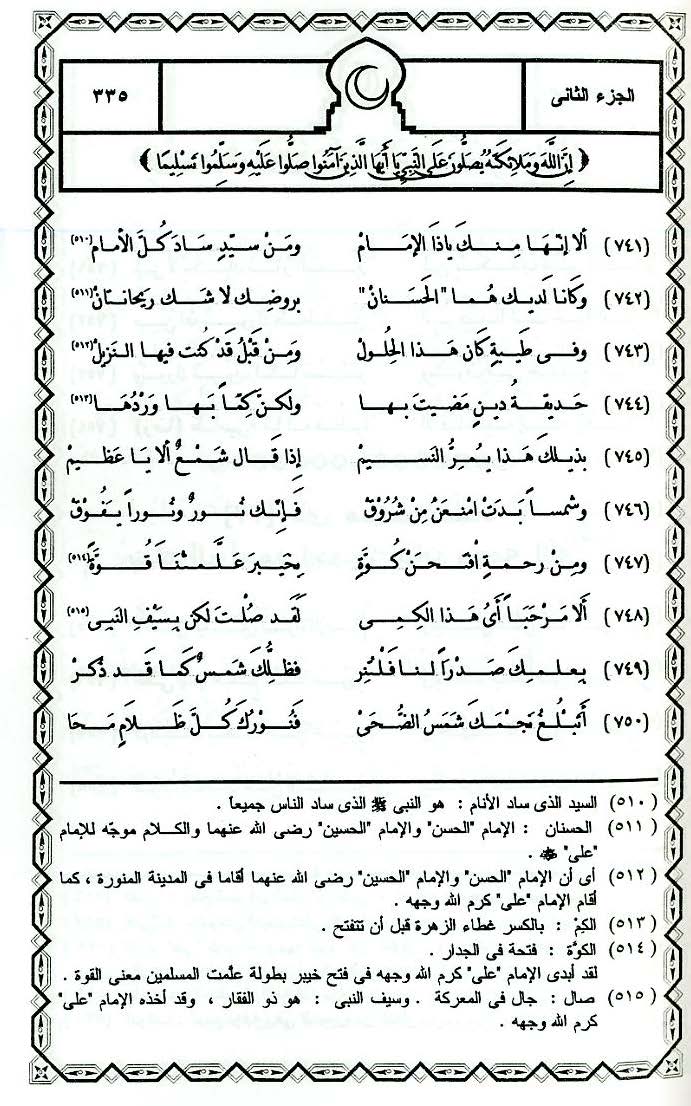 الجزء الثانى
٣٣٥
﴿ إِنَّ اللَّهَ وَمَلَائِكَتَهُ يُصَلُّونَ عَلَى النَّبِيِّ يَا أَيُّهَا الَّذِينَ آمَنُوا صَلُّوا عَلَيْهِ وَسَلِّمُوا تَسْلِيمًا ﴾
(٧٤١) ألا إنّهَا مِنكَ يَاذَا الإمَامْ ومَنْ سيِّدٍ سَادَ كُلَّ الأنامِ (٥١٠)
(٧٤٢) وكَانا لَديكَ هُما "الحَسَنانْ" بروضِكَ لا شَك رَيحَانتَانْ (٥١١)
(٧٤٣) وفى طَيبةٍ كان هَذا الحُلولْ ومَنْ قَبلُ قَدْ كُنت فيها النَزيلْ (٥١٢)
(٧٤٤) حَديقةُ دينٍ مَضَيتَ بهَا ولكنْ كِمّاً بهَا وَرْدُهَا (٥١٣)
(٧٤٥) بذيلكَ هَذا يُمِرُّ النَسيمْ إذا قَال شَمْعٌ ألا يَا عَظيمْ
(٧٤٦) وشَمساً بَدَتْ امْنعَنْ مِنْ شُرُوقْ فَإنّك نُورٌ ونُوراً يَفُوقْ
(٧٤٧) ومِنْ رحمةٍ افْتحَنْ كُوَّةً بخَيبرَ عَلَّمْتَنَا قُوَّةً (٥١٤)
(٧٤٨) ألَا مَرْحَبَاً أىُّ هَذا الكِمِى لَقَد صُلْتَ لكن بِسَيْفِ النَبى (٥١٥)
(٧٤٩) بِعِلمِكَ صَدْراً لنا فَلْتُنِر فظِلُّكَ شَمسٌ كَمَا قَد ذُكرْ
(٧٥٠) أتَبْلُغُ نجْمَكَ شَمسُ الضُحَى فَنُورُكَ كُلَّ ظَلَامٍ مَحَا
(٥١٠) السيد الذى ساد الأنام : هو النبى ﷺ الذى ساد الناس جميعاً .
(٥١١) الحسنان : الإمام "الحسن" والإمام "الحسين" رضى الله عنهما والكلام موجّه للإمام
"على" .
(٥١٢) أى أن الإمام "الحسن" والإمام "الحسين" رضى الله عنهما أقاما فى المدينة المنورة ، كما
أقام الإمام "على" كرم الله وجهه .
(٥١٣) الكمّ : بالكسر غطاء الزهرة قبل أن تتفتح .
(٥١٤) الكوّة : فتحة فى الجدار .
لقد أبدى الإمام "على" كرم الله وجهه فى فتح خيبر بطولة علّمت المسلمين معنى القوة .
(٥١٥) صال : جال فى المعركة . وسيف النبى : هو ذو الفقار ، وقد أخذه الإمام "على"
كرم الله وجهه .